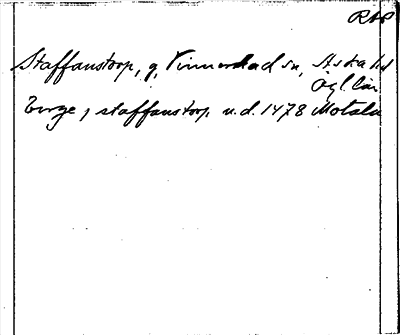 RAP
Staffanstorp, g, Vinnerstad sn, Aska hd
Ögl. län
Birge j staffanstorp u.d. 1478 Motala